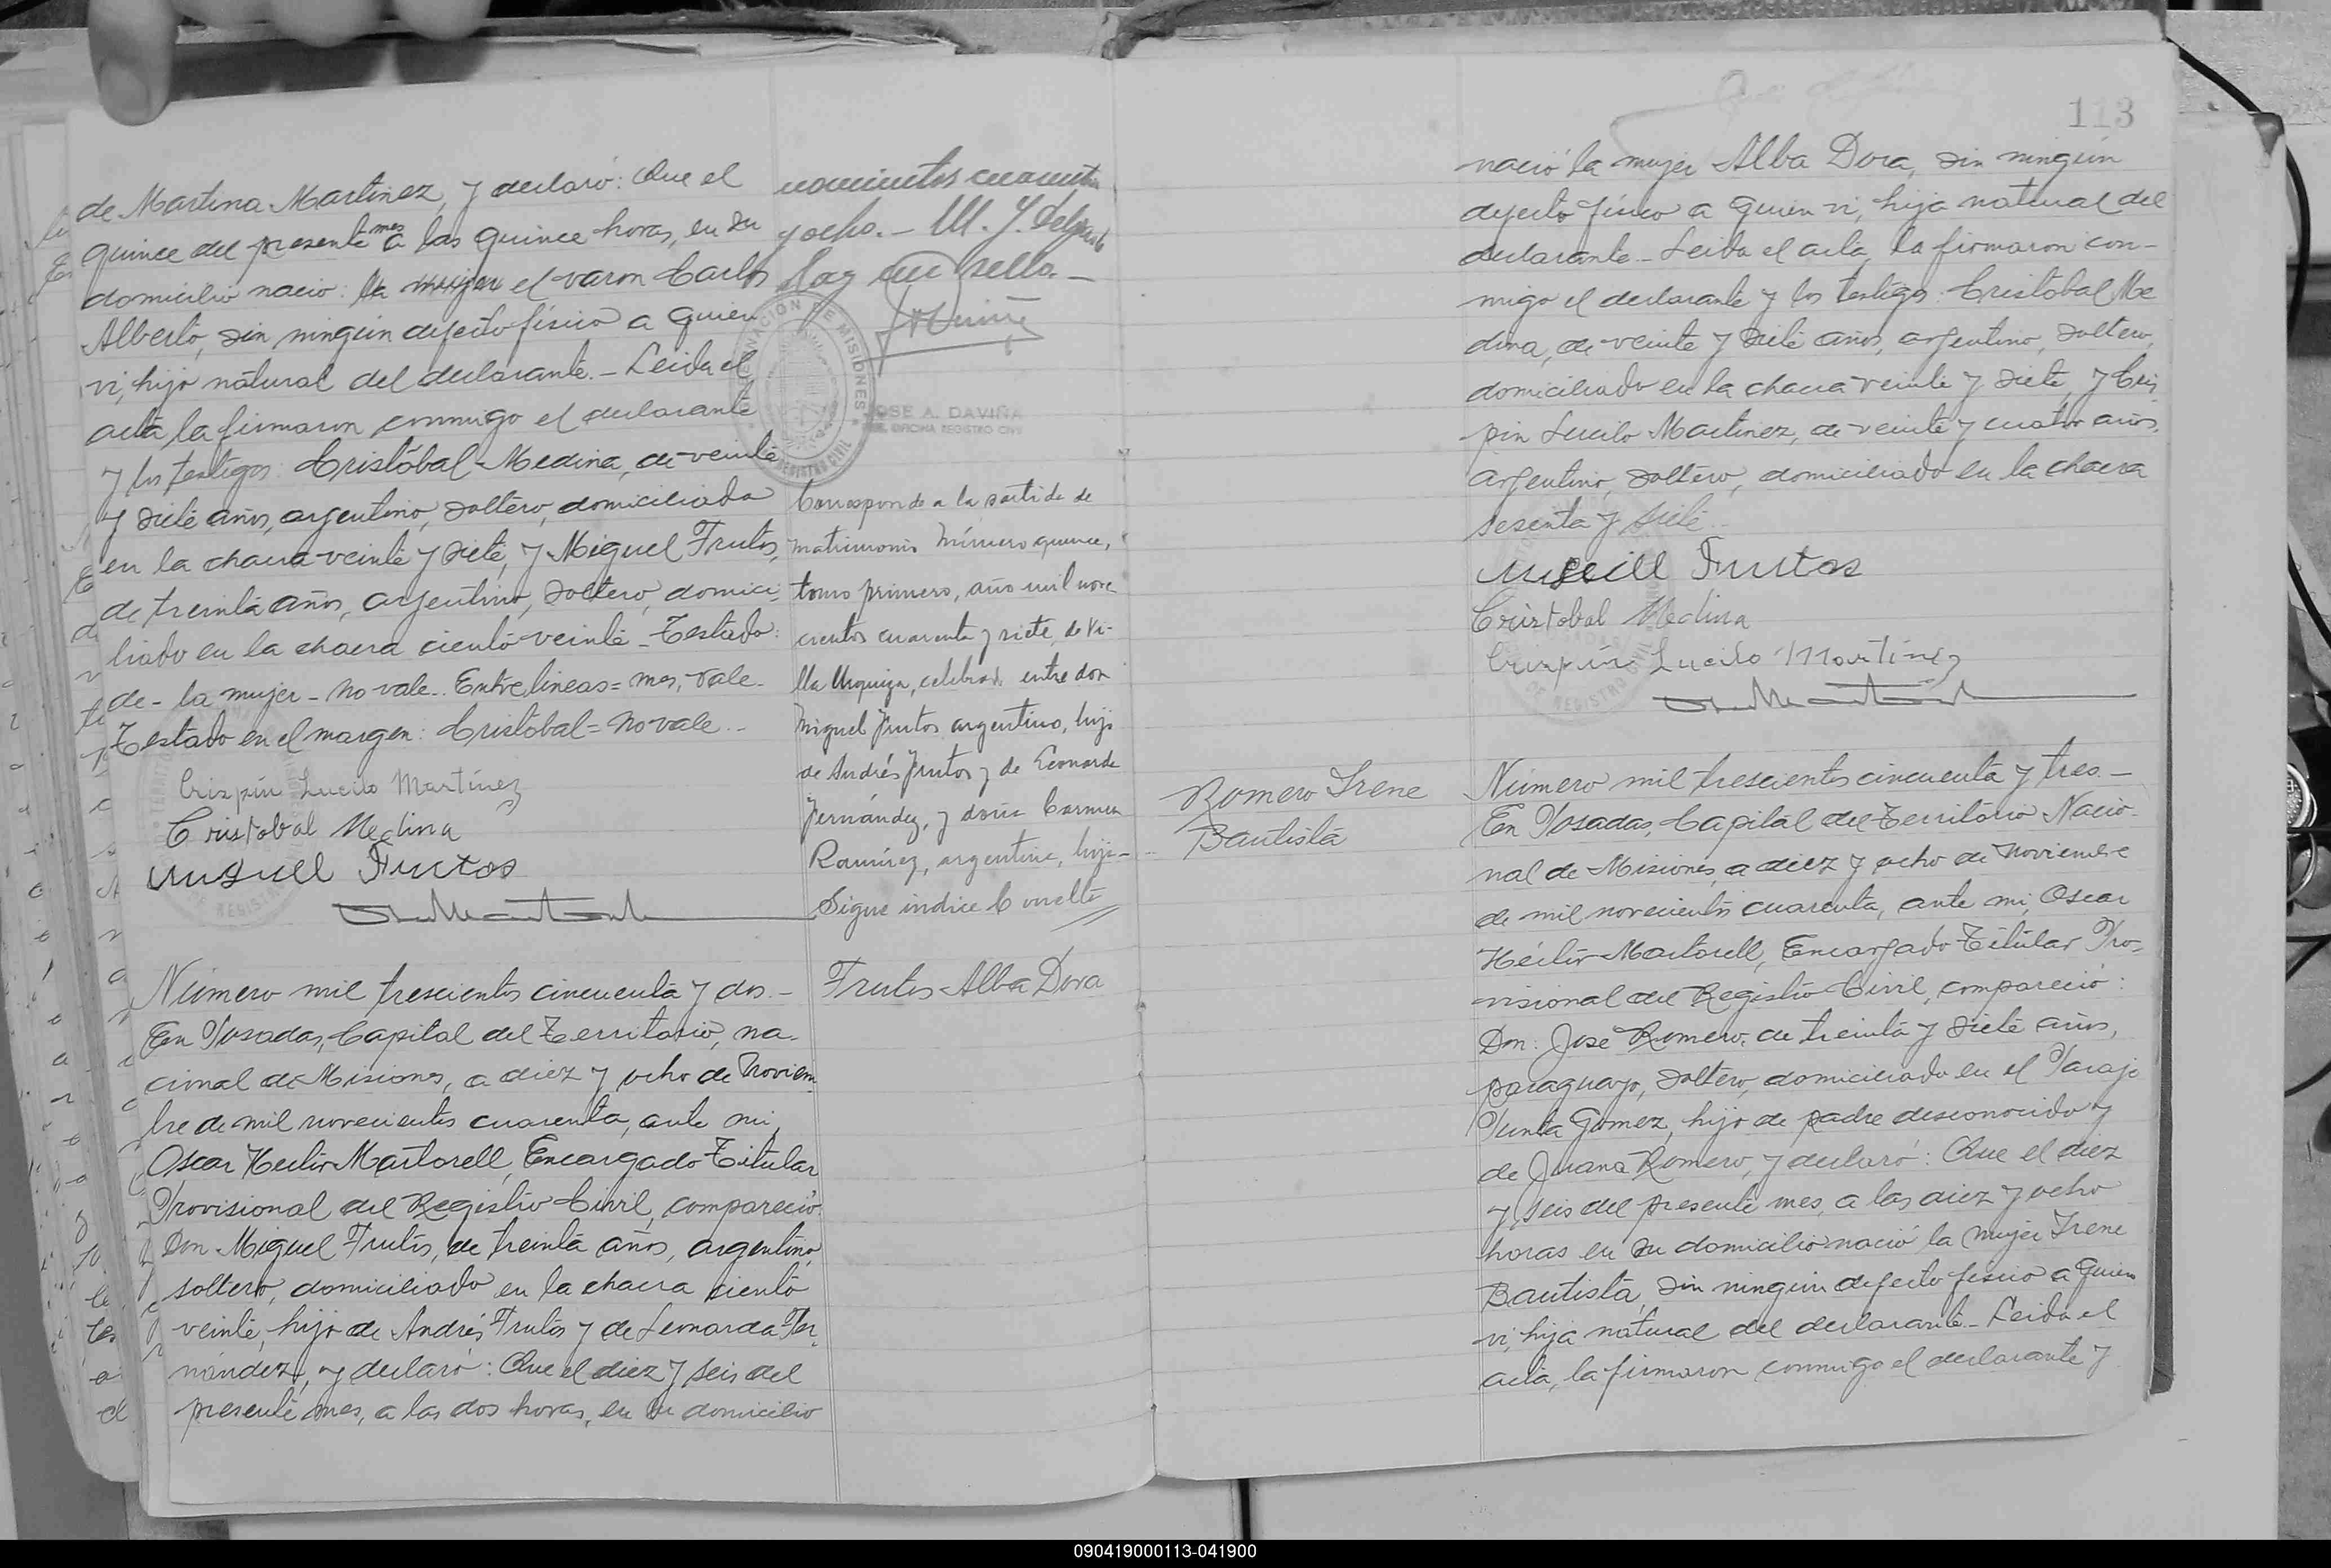 de Martina Martinez, y declaró: Que el
quince del presente mes a las quince horas, en su
domicilio nació: la mujer el varon Carlos
Alberto, sin ningún defecto físico a quien
vi, hijo natural del declarante.- Leida el
acta la firmaron conmigo el declarante
y los testigos: Cristóbal Medina, de veinte
y siete años, argentino, soltero, domiciliado
en la chacra veinte y siete, y Miguel Frutos,
de treinta años, argentino, soltero, domici-
liado en la chacra ciento veinte - Testado:
de - la mujer - no vale. Entre lineas = mes, vale.
Testado en el margen: Cristobal = no vale.
Crispín Lucilo Martínez
Cristobal Medina
Miguel Frutos
novecientos cuarenta
y ocho.- M. J. Delgado
Hay un sello.-
GOBERNACIÓN DE MISIONES
REGISTRO CIVIL
JOSE A. DAVIÑA
OFICINA REGISTRO CIVIL
Corresponde a la partida de
matrimonio número quince,
tomo primero, año mil nove
cientos cuarenta y siete, de Vi-
lla Urquiza, celebrado entre don
Miguel Frutos argentino, hijo
de Andrés Frutos y de Leonarda
Fernández, y doña Carmen
Ramírez, argentina, hija-
Sigue indice C vuelta
Número mil trescientos cincuenta y dos.-
En Posadas, Capital del Territorio, na-
cional de Misiones, a diez y ocho de Noviem
bre de mil novecientos cuarenta, ante mi,
Oscar Hector Martorell, Encargado Titular
Provisional del Registro Civil, compareció:
Don Miguel Frutos, de treinta años, argentino,
soltero, domiciliado en la chacra ciento
veinte, hijo de Andrés Frutos y de Leonarda Fer-
nández, y declaró: Que el diez y seis del
presente mes, a las dos horas, en su domicilio
Frutos Alba Dora
113
nació la mujer Alba Dora, sin ningún
defecto físico a quien vi, hija natural del
declarante.- Leida el acta, la firmaron con-
migo el declarante y los testigos: Cristobal Me
dina, de veinte y siete años, argentino, soltero,
domiciliado en la chacra veinte y siete, y Cris
pin Lucilo Martinez, de veinte y cuatro años,
argentino, soltero, domiciliado en la chacra
sesenta y siete.-
Miguel Frutos
Cristobal Medina
Crispín Lucilo Martinez
Romero Irene
Bautista
Número mil trescientos cincuenta y tres.-
En Posadas, Capital del Territorio Nacio-
nal de Misiones, a diez y ocho de Noviembre
de mil novecientos cuarenta, ante mi, Oscar
Héctor Martorell, Encargado Titular Pro-
visional del Registro Civil, compareció:
Don: José Romero, de treinta y siete años,
paraguayo, soltero, domiciliado en el Paraje
Punta Gomez, hijo de padre desconocido y
de Juana Romero, y declaró: Que el diez
y seis del presente mes, a las diez y ocho
horas en su domicilio nació la mujer Irene
Bautista, sin ningún defecto físico a quien
vi, hija natural del declarante.- Leida el
acta, la firmaron conmigo el declarante y
090419000113-041900